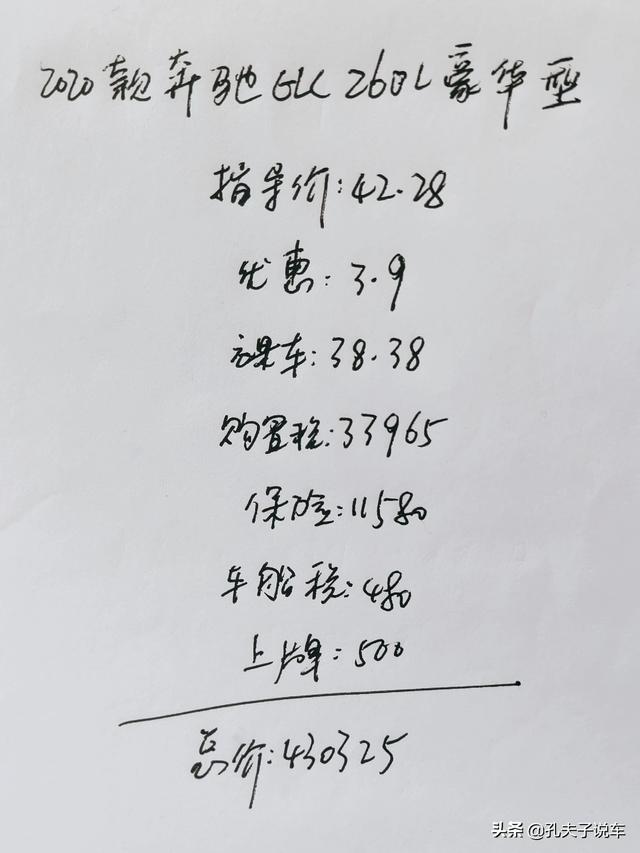 2020款奔驰GLC 260L豪华型
指导价:42.28
优惠:3.9
裸车:38.38
购置税:33965
保险:11580
车船税:480
上牌:500
总价:430325
头条 @孔夫子说车